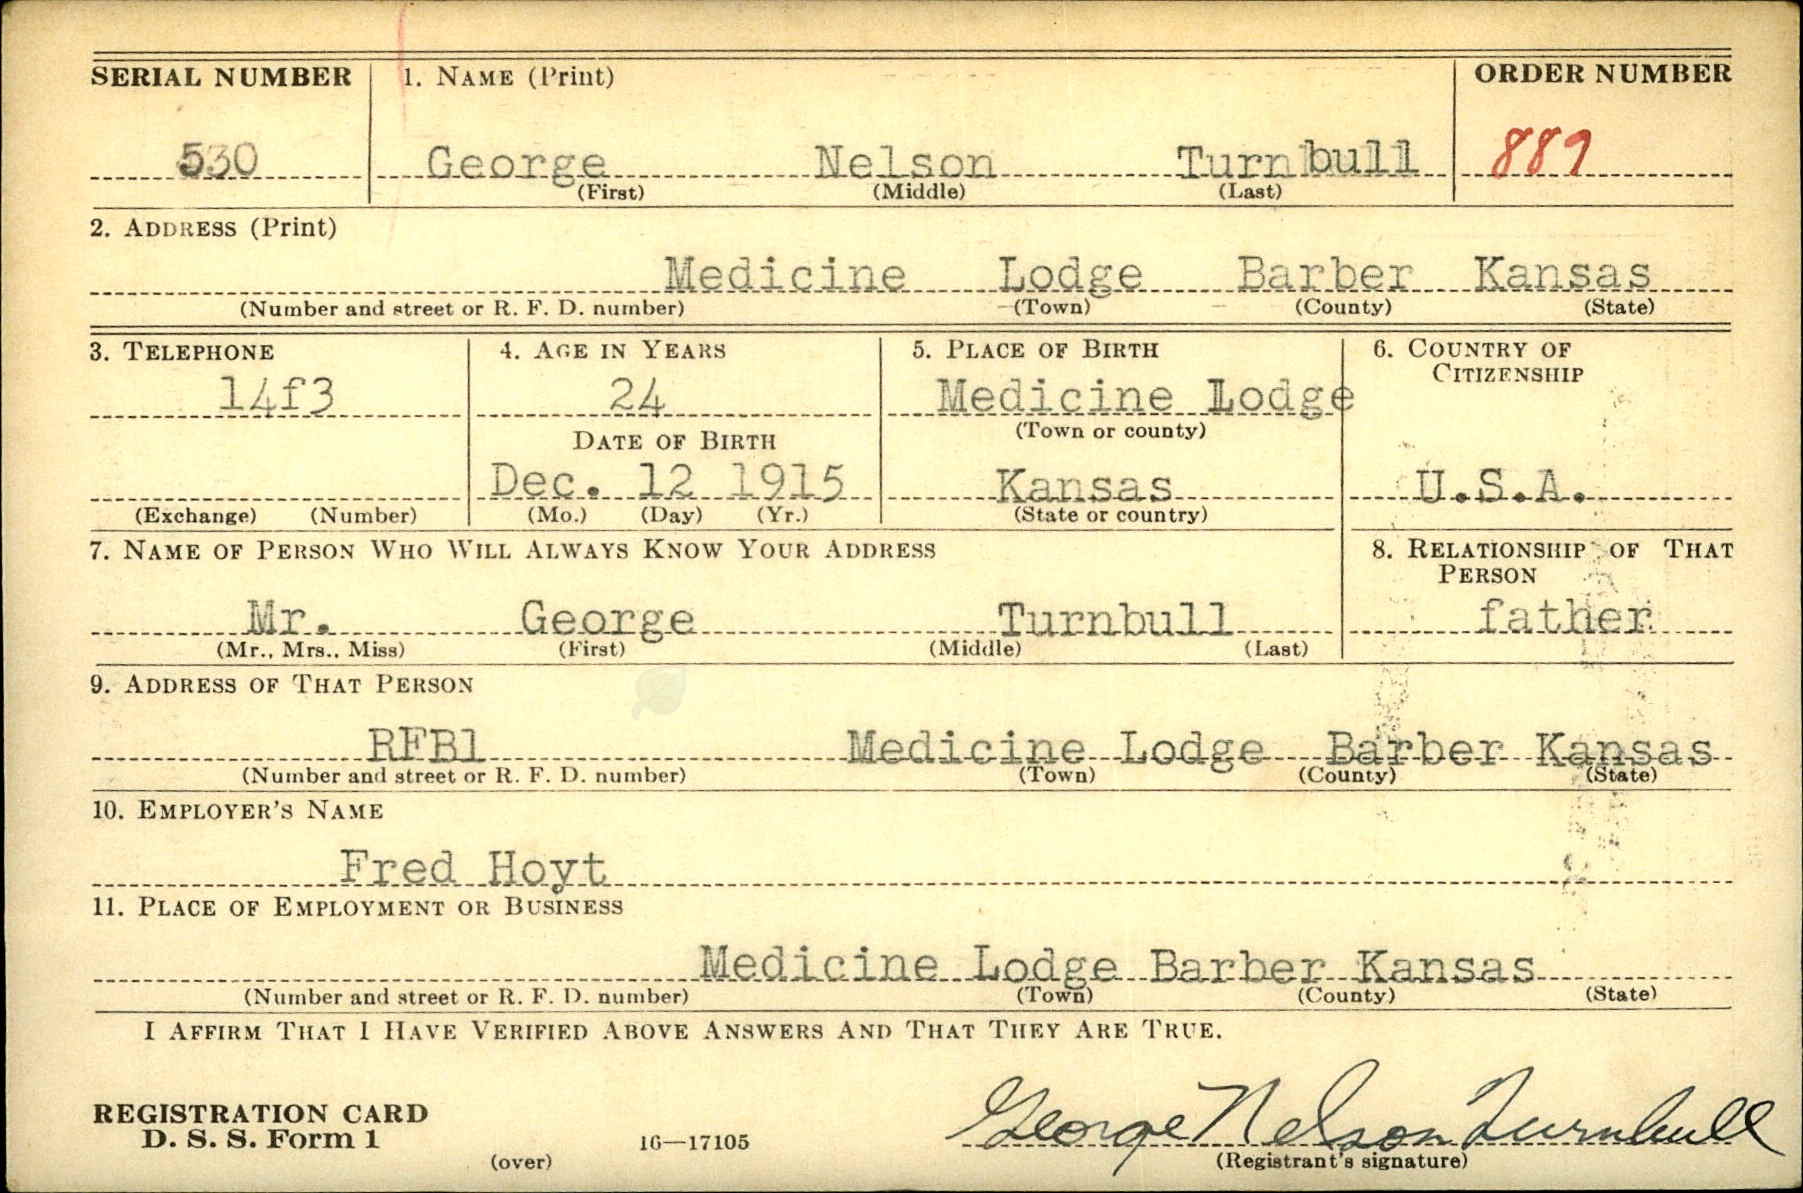 SERIAL NUMBER 1. NAME (Print) ORDER NUMBER
530 George Nelson Turnbull 889
(First) (Middle) (Last)
2. ADDRESS (Print)
Medicine Lodge Barber Kansas
(Number and street or R. F. D. number) (Town) (County) (State)
3. TELEPHONE 4. AGE IN YEARS 5. PLACE OF BIRTH 6. COUNTRY OF
CITIZENSHIP
14f3 24 Medicine Lodge
DATE OF BIRTH (Town or county)
Dec. 12 1915 Kansas U.S.A.
(Exchange) (Number) (Mo.) (Day) (Yr.) (State or country)
7. NAME OF PERSON WHO WILL ALWAYS KNOW YOUR ADDRESS 8. RELATIONSHIP OF THAT
PERSON
Mr. George Turnbull father
(Mr., Mrs., Miss) (First) (Middle) (Last)
9. ADDRESS OF THAT PERSON
RFB1 Medicine Lodge Barber Kansas
(Number and street or R. F. D. number) (Town) (County) (State)
10. EMPLOYER'S NAME
Fred Hoyt
11. PLACE OF EMPLOYMENT OR BUSINESS
Medicine Lodge Barber Kansas
(Number and street or R. F. D. number) (Town) (County) (State)
I AFFIRM THAT I HAVE VERIFIED ABOVE ANSWERS AND THAT THEY ARE TRUE.
REGISTRATION CARD
D. S. S. Form 1 16—17105 George Nelson Turnbull
(over) (Registrant's signature)